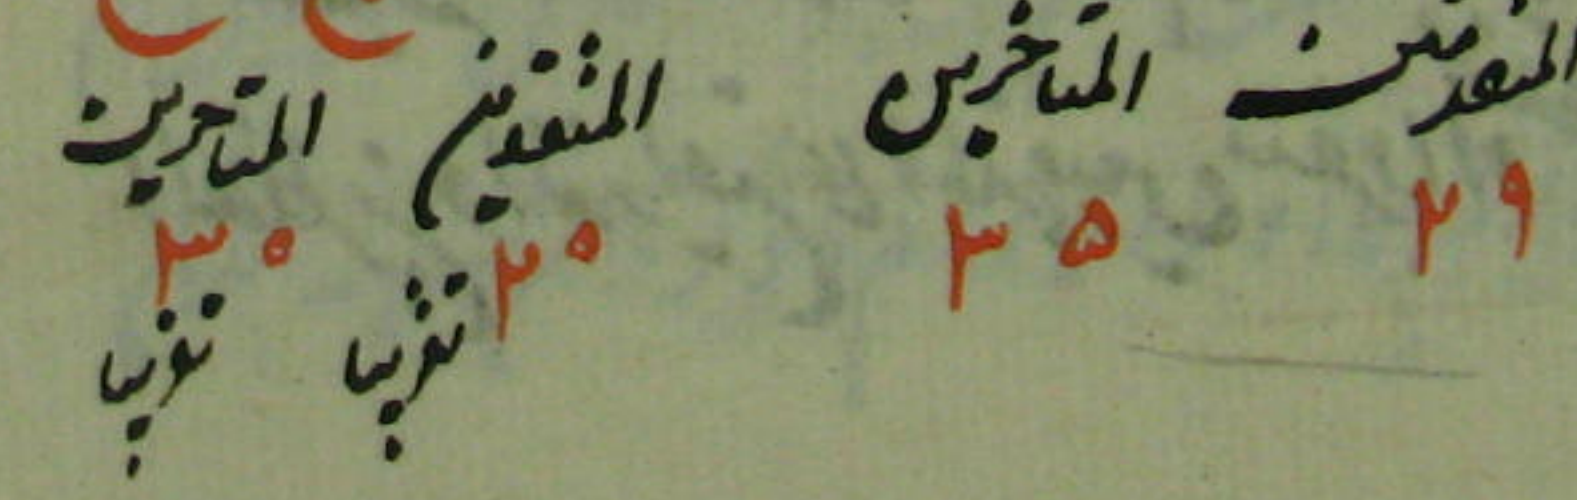 المتقدمين المتاخرين المتقدمين المتاخرين
٢٩ ٣٥ ٢٥ ٣٥
تقريبا تقريبا